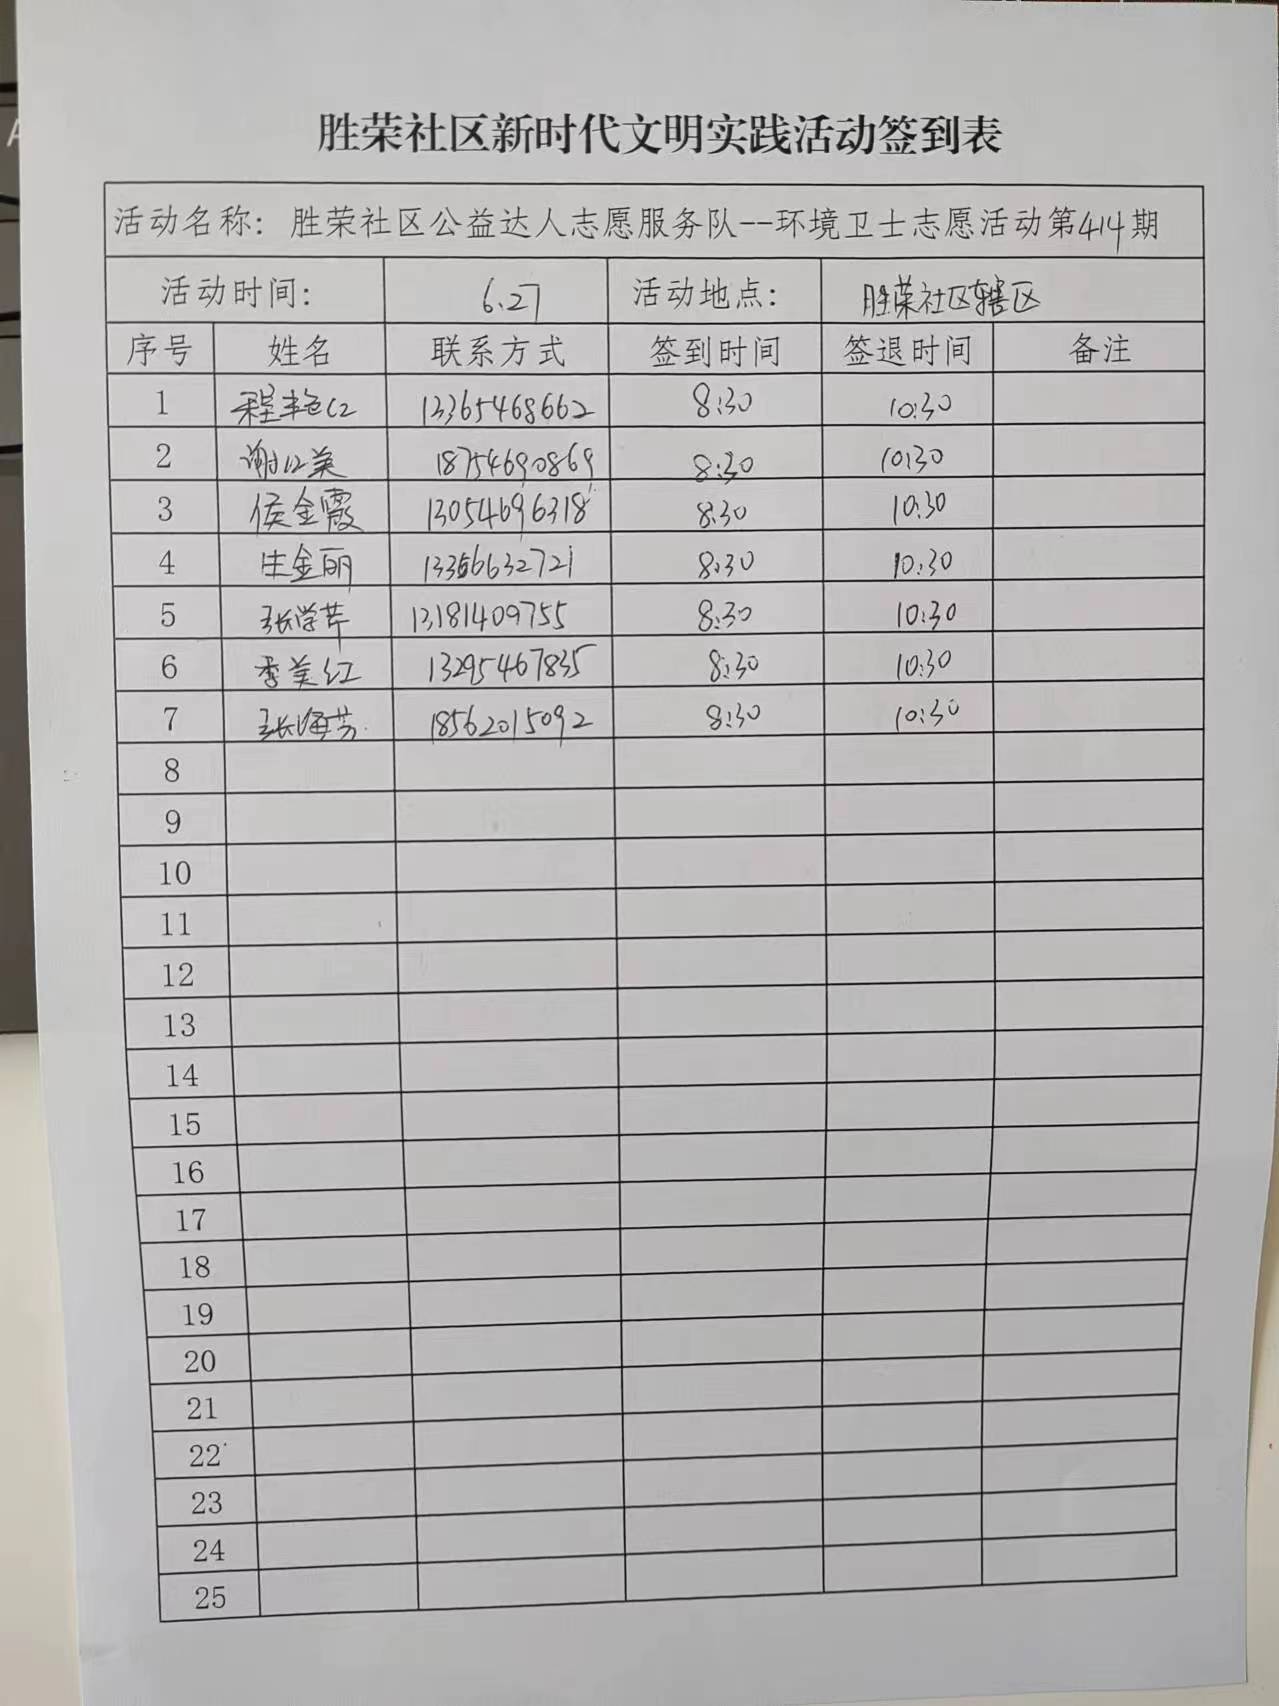 胜荣社区新时代文明实践活动签到表
活动名称：胜荣社区公益达人志愿服务队--环境卫士志愿活动第414期
活动时间： 6.27 活动地点： 胜荣社区辖区
序号 姓名 联系方式 签到时间 签退时间 备注
1 程艳红 13365468662 8:30 10:30
2 谢红美 18754690869 8:30 10:30
3 侯金霞 13054696318 8:30 10:30
4 生金丽 13356632721 8:30 10:30
5 张学芹 13181409755 8:30 10:30
6 李美红 13295467835 8:30 10:30
7 张海芳 18562015092 8:30 10:30
8
9
10
11
12
13
14
15
16
17
18
19
20
21
22
23
24
25